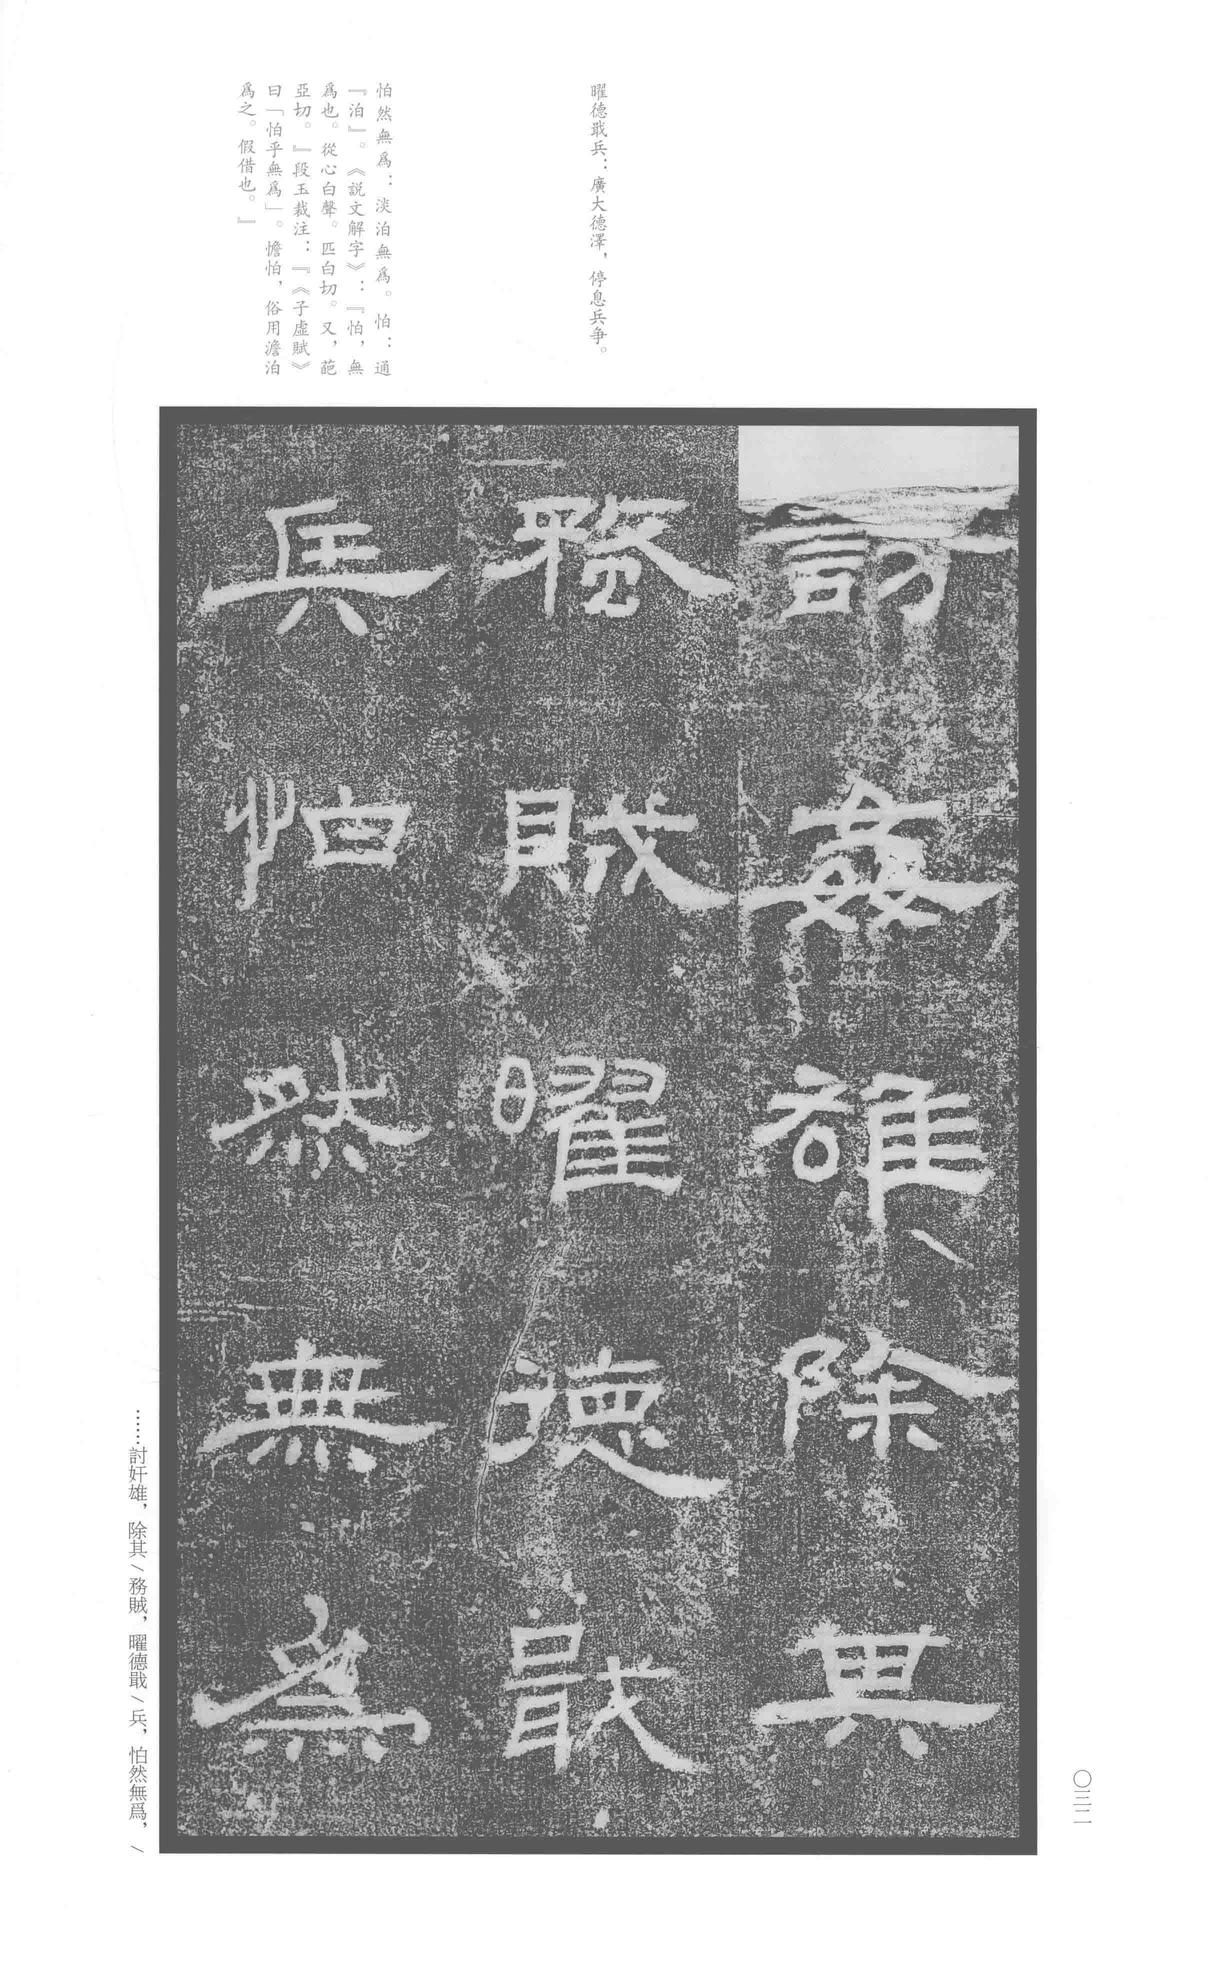 曜德戢兵：廣大德澤，停息兵争。
怕然無爲：淡泊無爲。怕：通
『泊』。《説文解字》：『怕，無
爲也。從心白聲。匹白切。又，葩
亞切。』段玉裁注：『《子虛賦》
曰「怕乎無爲」。憺怕，俗用澹泊
爲之。假借也。』
討姦雄除其
務賊曜德戢
兵怕然無爲
……討奸雄，除其/務賊，曜德戢/兵，怕然無爲，/
〇三二